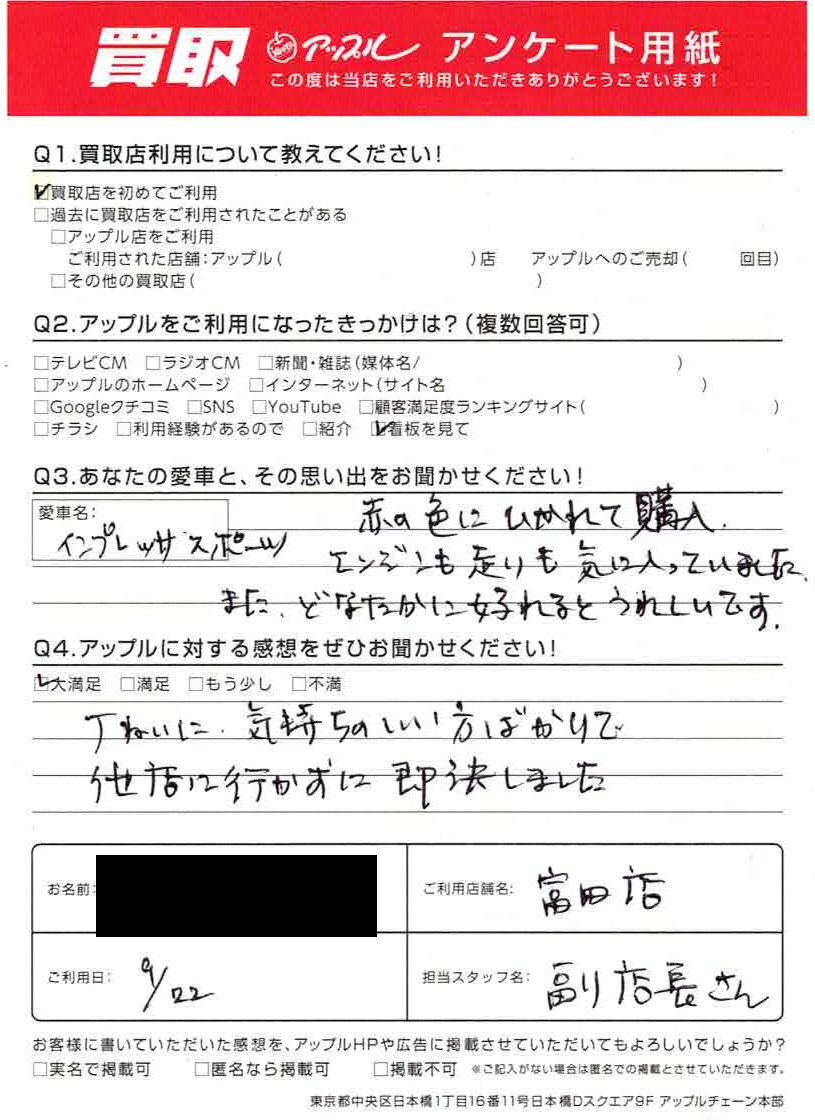 買取 アップル アンケート用紙
この度は当店をご利用いただきありがとうございます!
Q1.買取店利用について教えてください!
☑買取店を初めてご利用
□過去に買取店をご利用されたことがある
□アップル店をご利用
ご利用された店舗:アップル( )店 アップルへのご売却( 回目)
□その他の買取店( )
Q2.アップルをご利用になったきっかけは?(複数回答可)
□テレビCM □ラジオCM □新聞・雑誌(媒体名/ )
□アップルのホームページ □インターネット(サイト名 )
□Googleクチコミ □SNS □YouTube □顧客満足度ランキングサイト( )
□チラシ □利用経験があるので □紹介 ☑看板を見て
Q3.あなたの愛車と、その思い出をお聞かせください!
愛車名:
インプレッサスポーツ
赤の色にひかれて購入.
エンジンも走りも気に入っていました.
また、どなたかに好れるとうれしいです.
Q4.アップルに対する感想をぜひお聞かせください!
☑大満足 □満足 □もう少し □不満
丁ねいに、気持ちのいい方ばかりで
他店に行かずに即決しました
お名前:
ご利用店舗名: 富田店
ご利用日: 9/22
担当スタッフ名: 副店長さん
お客様に書いていただいた感想を、アップルHPや広告に掲載させていただいてもよろしいでしょうか?
□実名で掲載可 □匿名なら掲載可 □掲載不可 ※ご記入がない場合は匿名での掲載とさせていただきます。
東京都中央区日本橋1丁目16番11号日本橋Dスクエア9F アップルチェーン本部